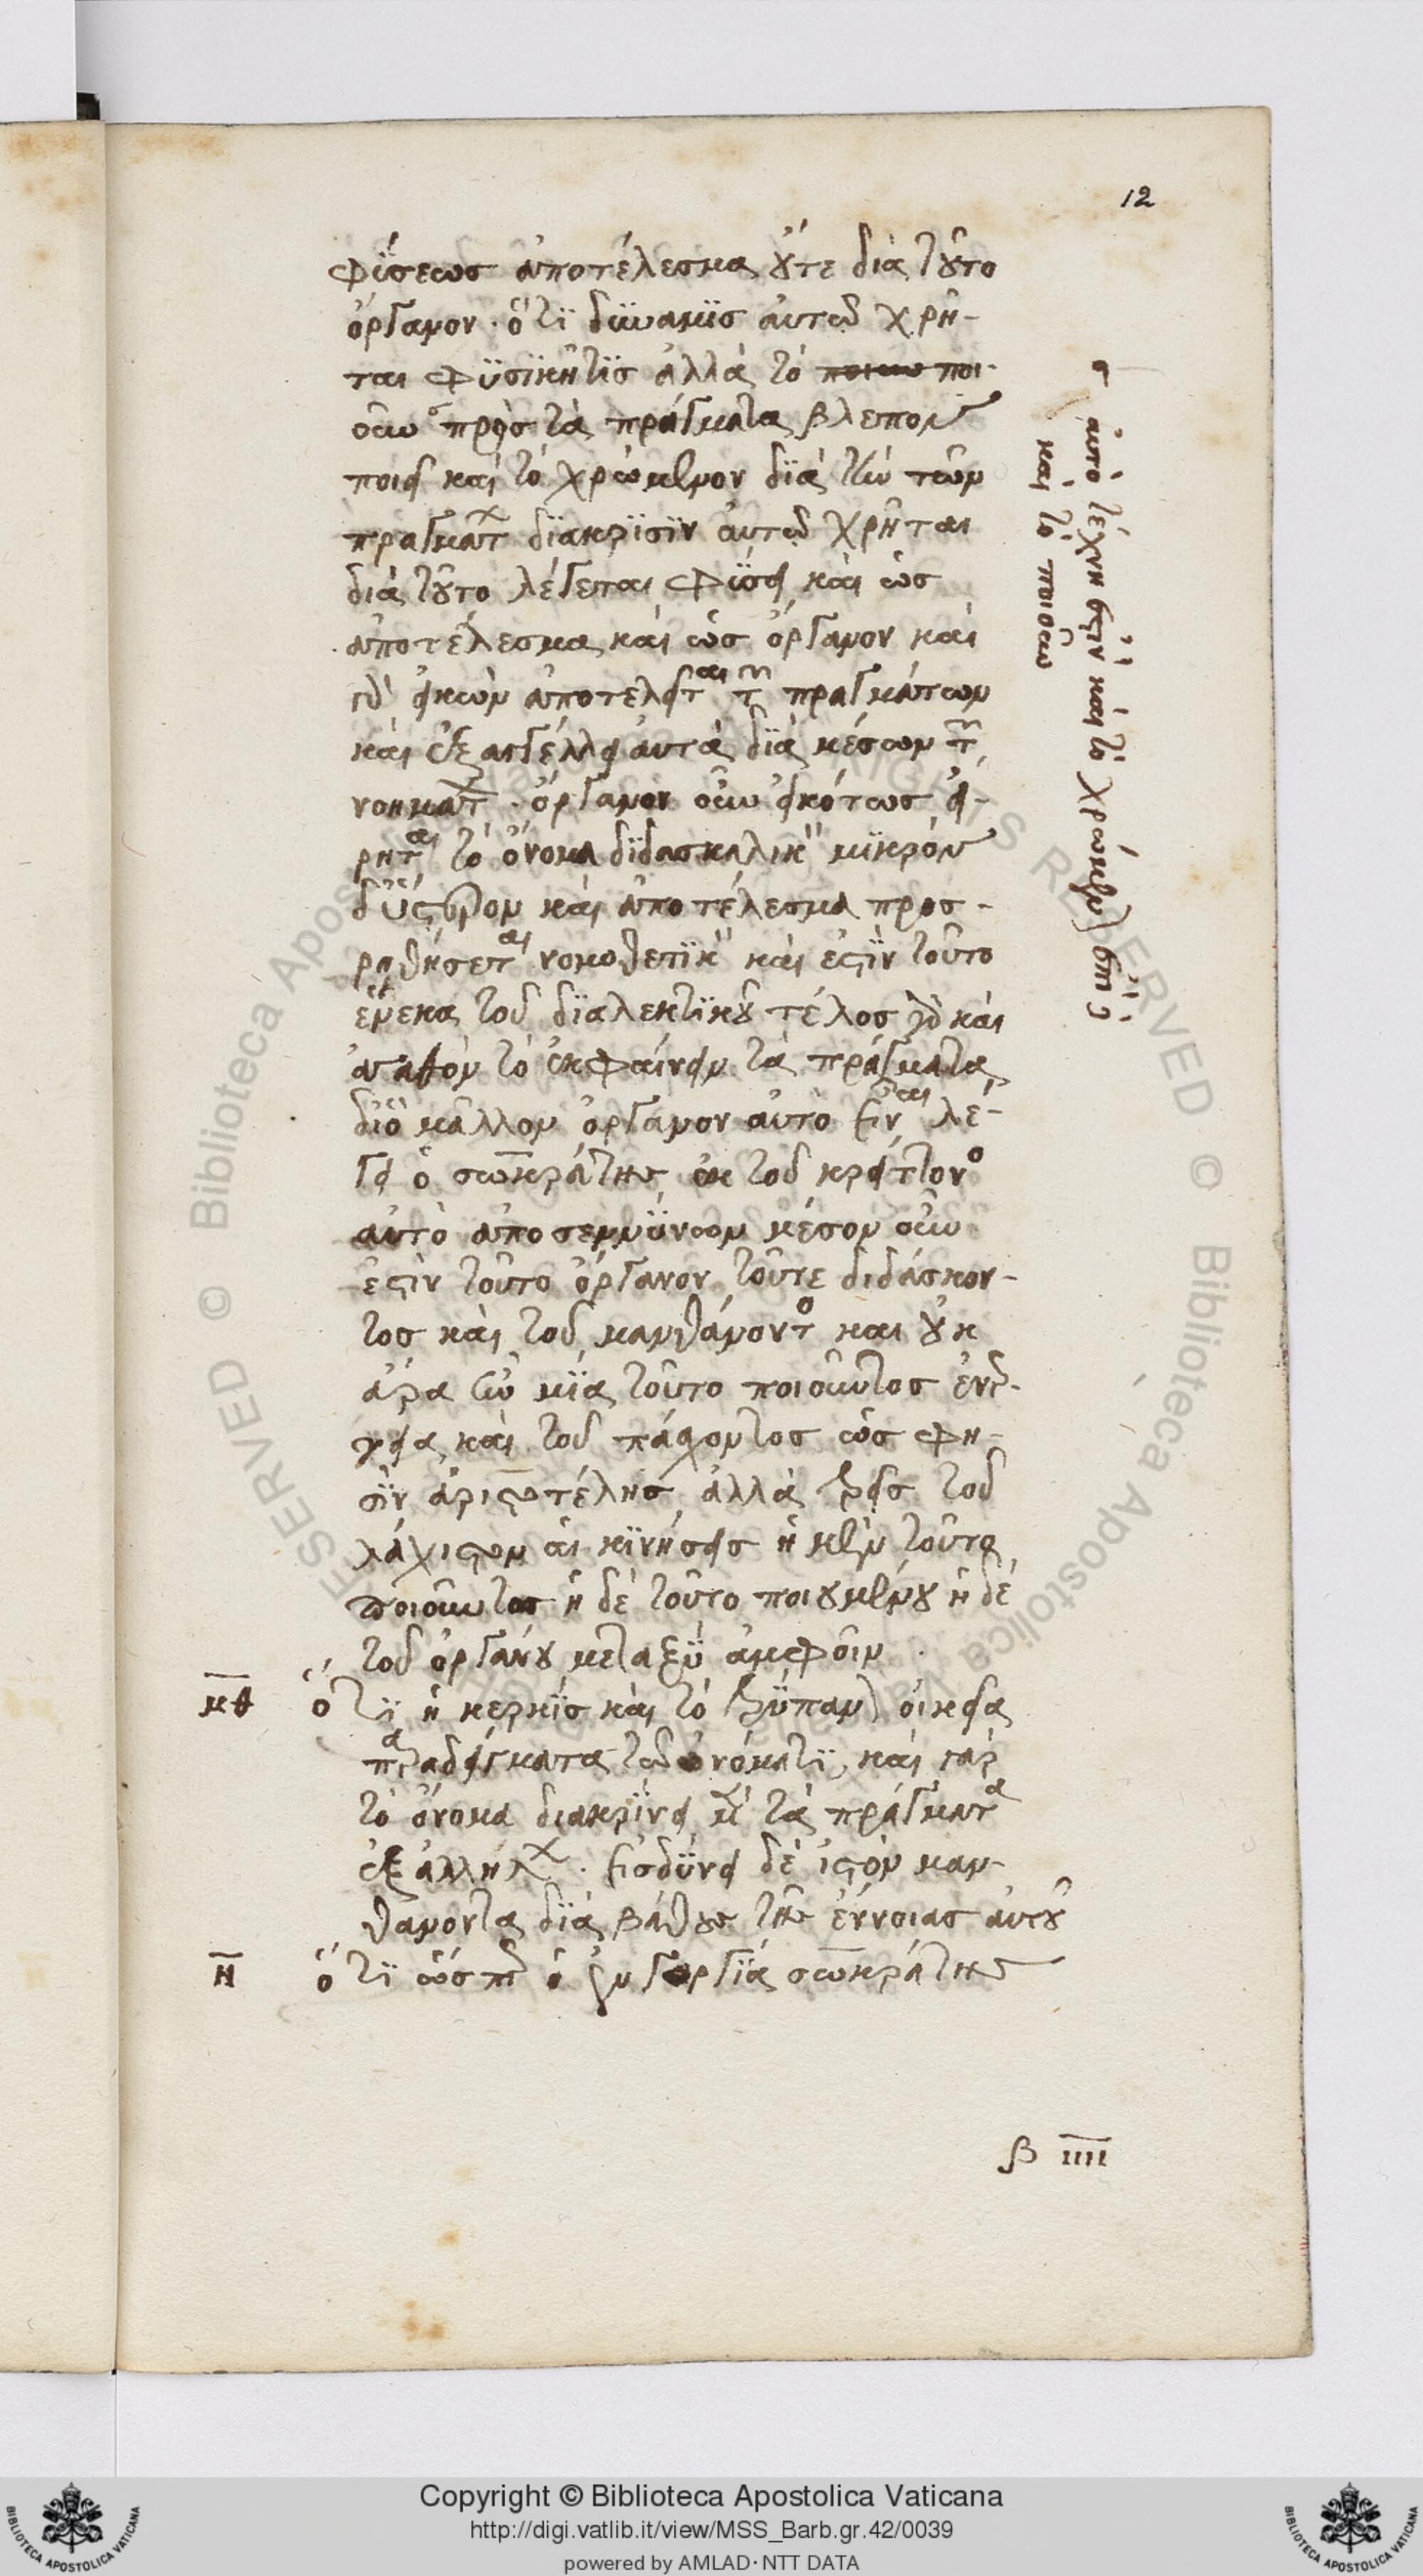 12
φύσεως ἀποτέλεσμα οὔτε διὰ τοῦτο
ὄργανον · ὅτι δύναμις αὐτῶ χρῆ-
ται φυσικήτις ἀλλὰ τὸ ποι-
οῦν πρὸς τὰ πράγματα βλεπον
ποιεῖ καὶ τὸ χρώμενον διὰ τὴν τῶν
πραγμάτων διάκρισιν αὐτῶ χρῆται
διὰ τοῦτο λέγεται φύσει καὶ ὡς
ἀποτέλεσμα καὶ ὡς ὄργανον καὶ
γὰρ εἰκὼν ἀποτελεῖται τῶν πραγμάτων
καὶ ἐξαγγέλλει αὐτὰ διὰ μέσων τῶν
νοημάτων · ὄργανον οὖν εἰκότως εἴ-
ρηται τὸ ὄνομα διδασκαλικὸν μικρὸν
δὕστερον καὶ ἀποτέλεσμα προσ-
ρηθήσεται νομοθετικὸν καὶ ἐστὶν τοῦτο
ἕνεκα τοῦ διαλεκτικοῦ τέλος γὰρ καὶ
ἀγαθὸν τὸ ἐκφαίνειν τὰ πράγματα
διὸ μᾶλλον ὄργανον αὐτὸ εἶναι λέ-
γει ὁ σωκράτης ἐκ τοῦ κρείττονος
αὐτὸ ἀποσεμνύνων μέσον οὖν
ἐστὶν τοῦτο ὄργανον τοῦτε διδάσκον-
τος καὶ τοῦ μανθάνοντος και οὐκ
ἄρα ἦν μία τοῦτο ποιοῦντος ἐνέρ-
γεια καὶ τοῦ πάσχοντος ὡς φη-
σὶν ἀριστοτέλης ἀλλὰ τρεῖς τοὐ
λάχιστον αἱ κινήσεις ἡ μὲν τοῦτο
ποιοῦντος ἡ δὲ τοῦτο ποιουμένου ἡ δὲ
τοῦ ὀργάνου μεταξὺ ἀμφοῖν ·
μθ ὅτι ἡ κερκὶς καὶ τὸ τρύπανον οἰκεῖα
παραδείγματα τῶ ὀνόματι καὶ γὰρ
τὸ ὄνομα διακρίνει μὲν τὰ πράγματα
ἐξ ἀλλήλων · εἰσδύνει δὲ εἰς τὸν μαν-
θάνοντα διὰ βάθους τῆς ἐννοίας αὐτοῦ
ν ὅτι ὥσπερ ὁ ἐν γοργία σωκράτης
β ιιιι
αὐτὸ τέχνη ἐστὶν καὶ τὸ χρώμενον ἐπεὶ
καὶ τὸ ποιοῦν
© Biblioteca Apostolica Vaticana
ALL RIGHTS RESERVED
Copyright © Biblioteca Apostolica Vaticana
http://digi.vatlib.it/view/MSS_Barb.gr.42/0039
powered by AMLAD·NTT DATA
BIBLIOTECA APOSTOLICA VATICANA
BIBLIOTECA APOSTOLICA VATICANA